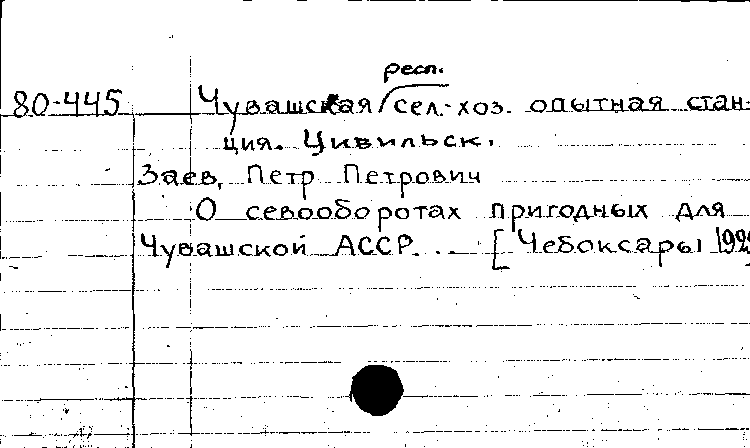 респ.
80-445 Чувашская сел.-хоз. опытная стан-
ция. Цивильск.
Заев, Петр Петрович
О севооборотах пригодных для
Чувашской АССР... [Чебоксары